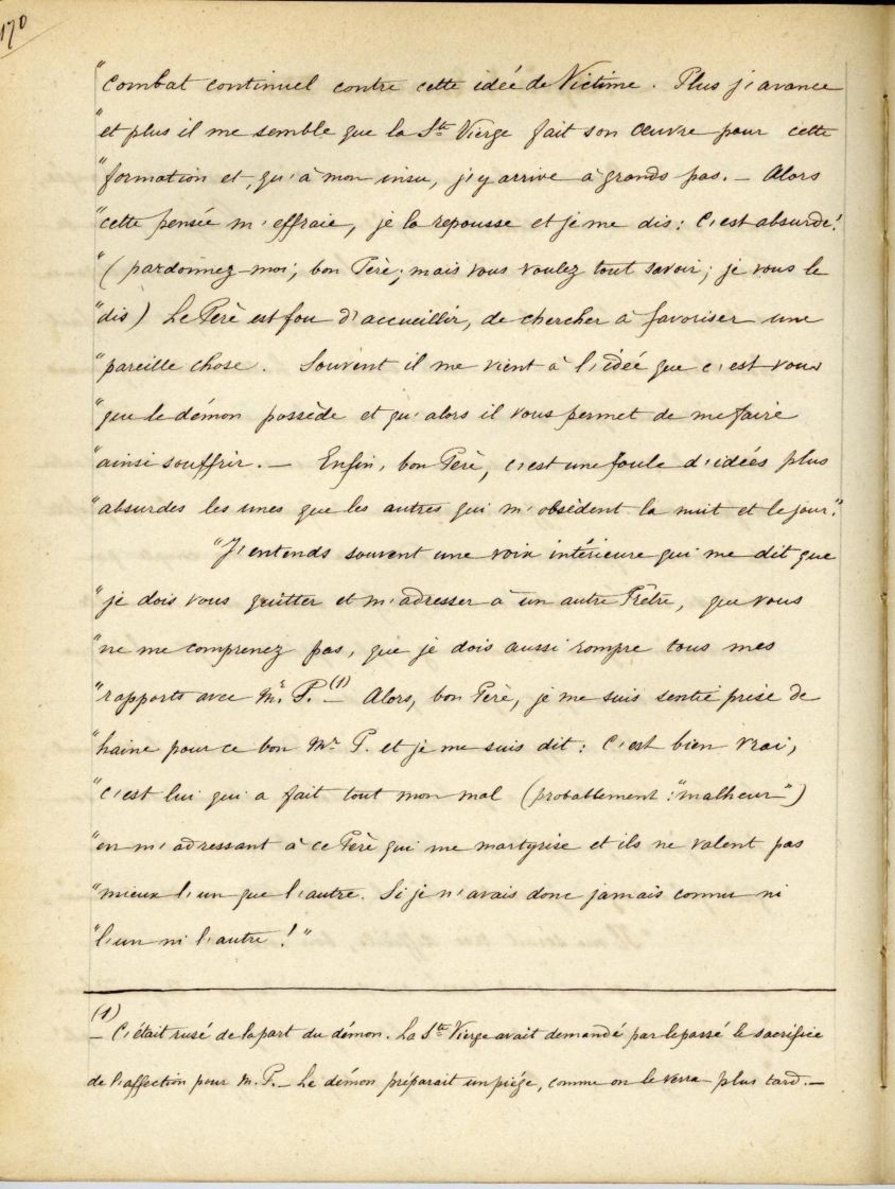 170
"combat continuel contre cette idée de Victime. Plus j'avance
"et plus il me semble que la Ste Vierge fait son Œuvre pour cette
"formation et, qu'à mon insu, j'y arrive à grands pas. — Alors
"cette pensée m'effraie, je la repousse et je me dis: C'est absurde!
"(pardonnez-moi, bon Père; mais vous voulez tout savoir; je vous le
"dis) Le Père est fou d'accueillir, de chercher à favoriser une
"pareille chose. Souvent il me vient à l'idée que c'est vous
"que le démon possède et qu'alors il vous permet de me faire
"ainsi souffrir. — Enfin, bon Père, c'est une foule d'idées plus
"absurdes les unes que les autres qui m'obsèdent la nuit et le jour."
"J'entends souvent une voix intérieure qui me dit que
"je dois vous quitter et m'adresser à un autre Prêtre, que vous
"ne me comprenez pas, que je dois aussi rompre tous mes
"rapports avec Mr. P. (1) — Alors, bon Père, je me suis sentie prise de
"haine pour ce bon Mr P. et je me suis dit: C'est bien vrai,
"c'est lui qui a fait tout mon mal (probablement: "malheur")
"en m'adressant à ce Père qui me martyrise et ils ne valent pas
"mieux l'un que l'autre. Si je n'avais donc jamais connu ni
"l'un ni l'autre!"
(1)
— C'était rusé de la part du démon. La Ste Vierge avait demandé par le passé le sacrifice
de l'affection pour M. P. — Le démon préparait un piége, comme on le verra plus tard. —